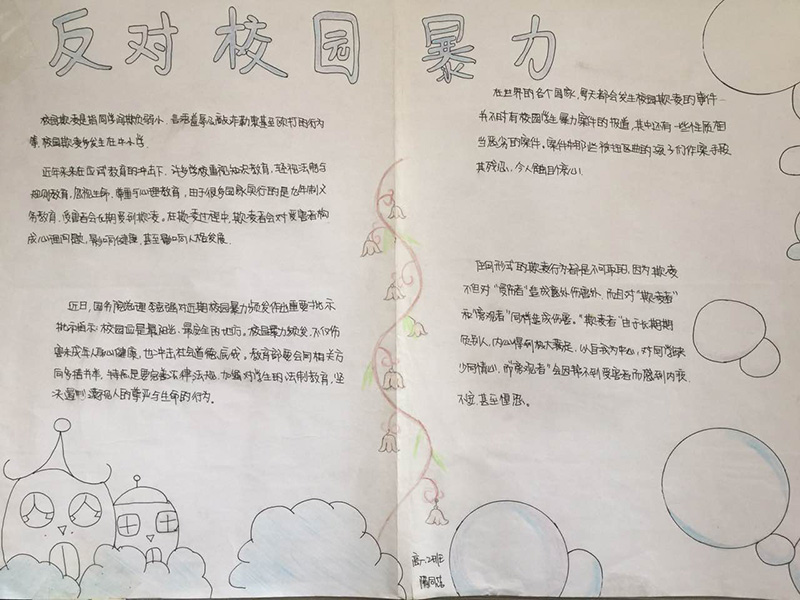 反对校园暴力
校园欺凌是指同学间欺负弱小、言语羞辱及敲诈勒索甚至殴打的行为
等,校园欺凌多发生在中小学.
近年来在应试教育的冲击下,许多学校重视知识教育,轻视法制与
规则教育,忽视生命、尊重与心理教育,由于很多国家实行的是九年制义
务教育,受害者会长期受到欺凌。在欺凌过程中,欺凌者会对受害者构
成心理问题,影响健康,甚至影响人格发展.
近日,国务院总理李克强对近期校园暴力频发作出重要批示
批示指示:校园应是最阳光、最安全的地方。校园暴力频发,不仅伤
害未成年人身心健康,也冲击社会道德底线。教育部要会同相关方
面多措并举,特别是要完善法律法规、加强对学生的法制教育,坚
决遏制漠视人的尊严与生命的行为。
在世界的各个国家,每天都会发生校园欺凌的事件
并不时有校园学生暴力案件的报道,其中还有一些性质相
当恶劣的案件。案件中那些被扭曲的孩子们作案手段
其残忍,令人触目惊心!
任何形式的欺凌行为都是不可取的,因为欺凌
不但对“受伤者”造成意外伤害外,而且对“欺凌者”
和“旁观者”同样造成伤害。“欺凌者”由于长期欺
负别人,内心得到极大满足,以自我为中心,对同学缺
少同情心,而“旁观者”会因帮不到受害者而感到内疚、
不安,甚至惶恐。
高一.2班